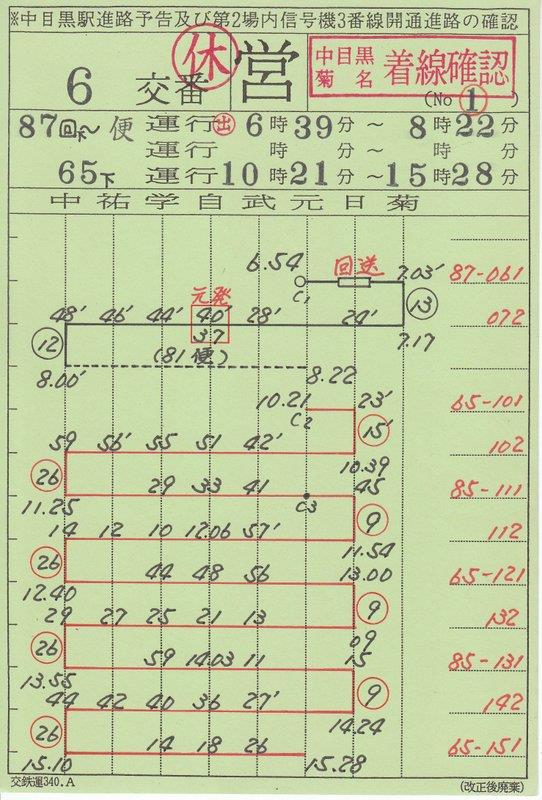 ※中目黒駅進路予告及び第2場内信号機3番線開通進路の確認
6 交番 休 営 中目黒 菊名 着線確認
(No 1)
87回下〜便 運行 出 6時39分 〜 8時22分
運行 時 分 〜 時 分
65下 運行 10時21分 〜 15時28分
中 祐 学 自 武 元 日 菊
6.54 回送 7.03′ 87-061
C1 13
元発
48′ 46′ 44′ 40′ 28′ 24′ 072
12 37 7.17
(81便)
8.00′ 8.22
10.21 23′ 65-101
C2 15′
59 56′ 55 51 42′ 102
10.39
26 29 33 41 45 85-111
11.25 C3
14 12 10 12.06 57′ 9 112
11.54
26 44 48 56 13.00 65-121
12.40
29 27 25 21 13 9 132
09
26 59 14.03 11 15 85-131
13.55
44 42 40 36 27′ 9 142
14.24
26 14 18 26 65-151
15.10 15.28
交鉄運340.A (改正後廃棄)